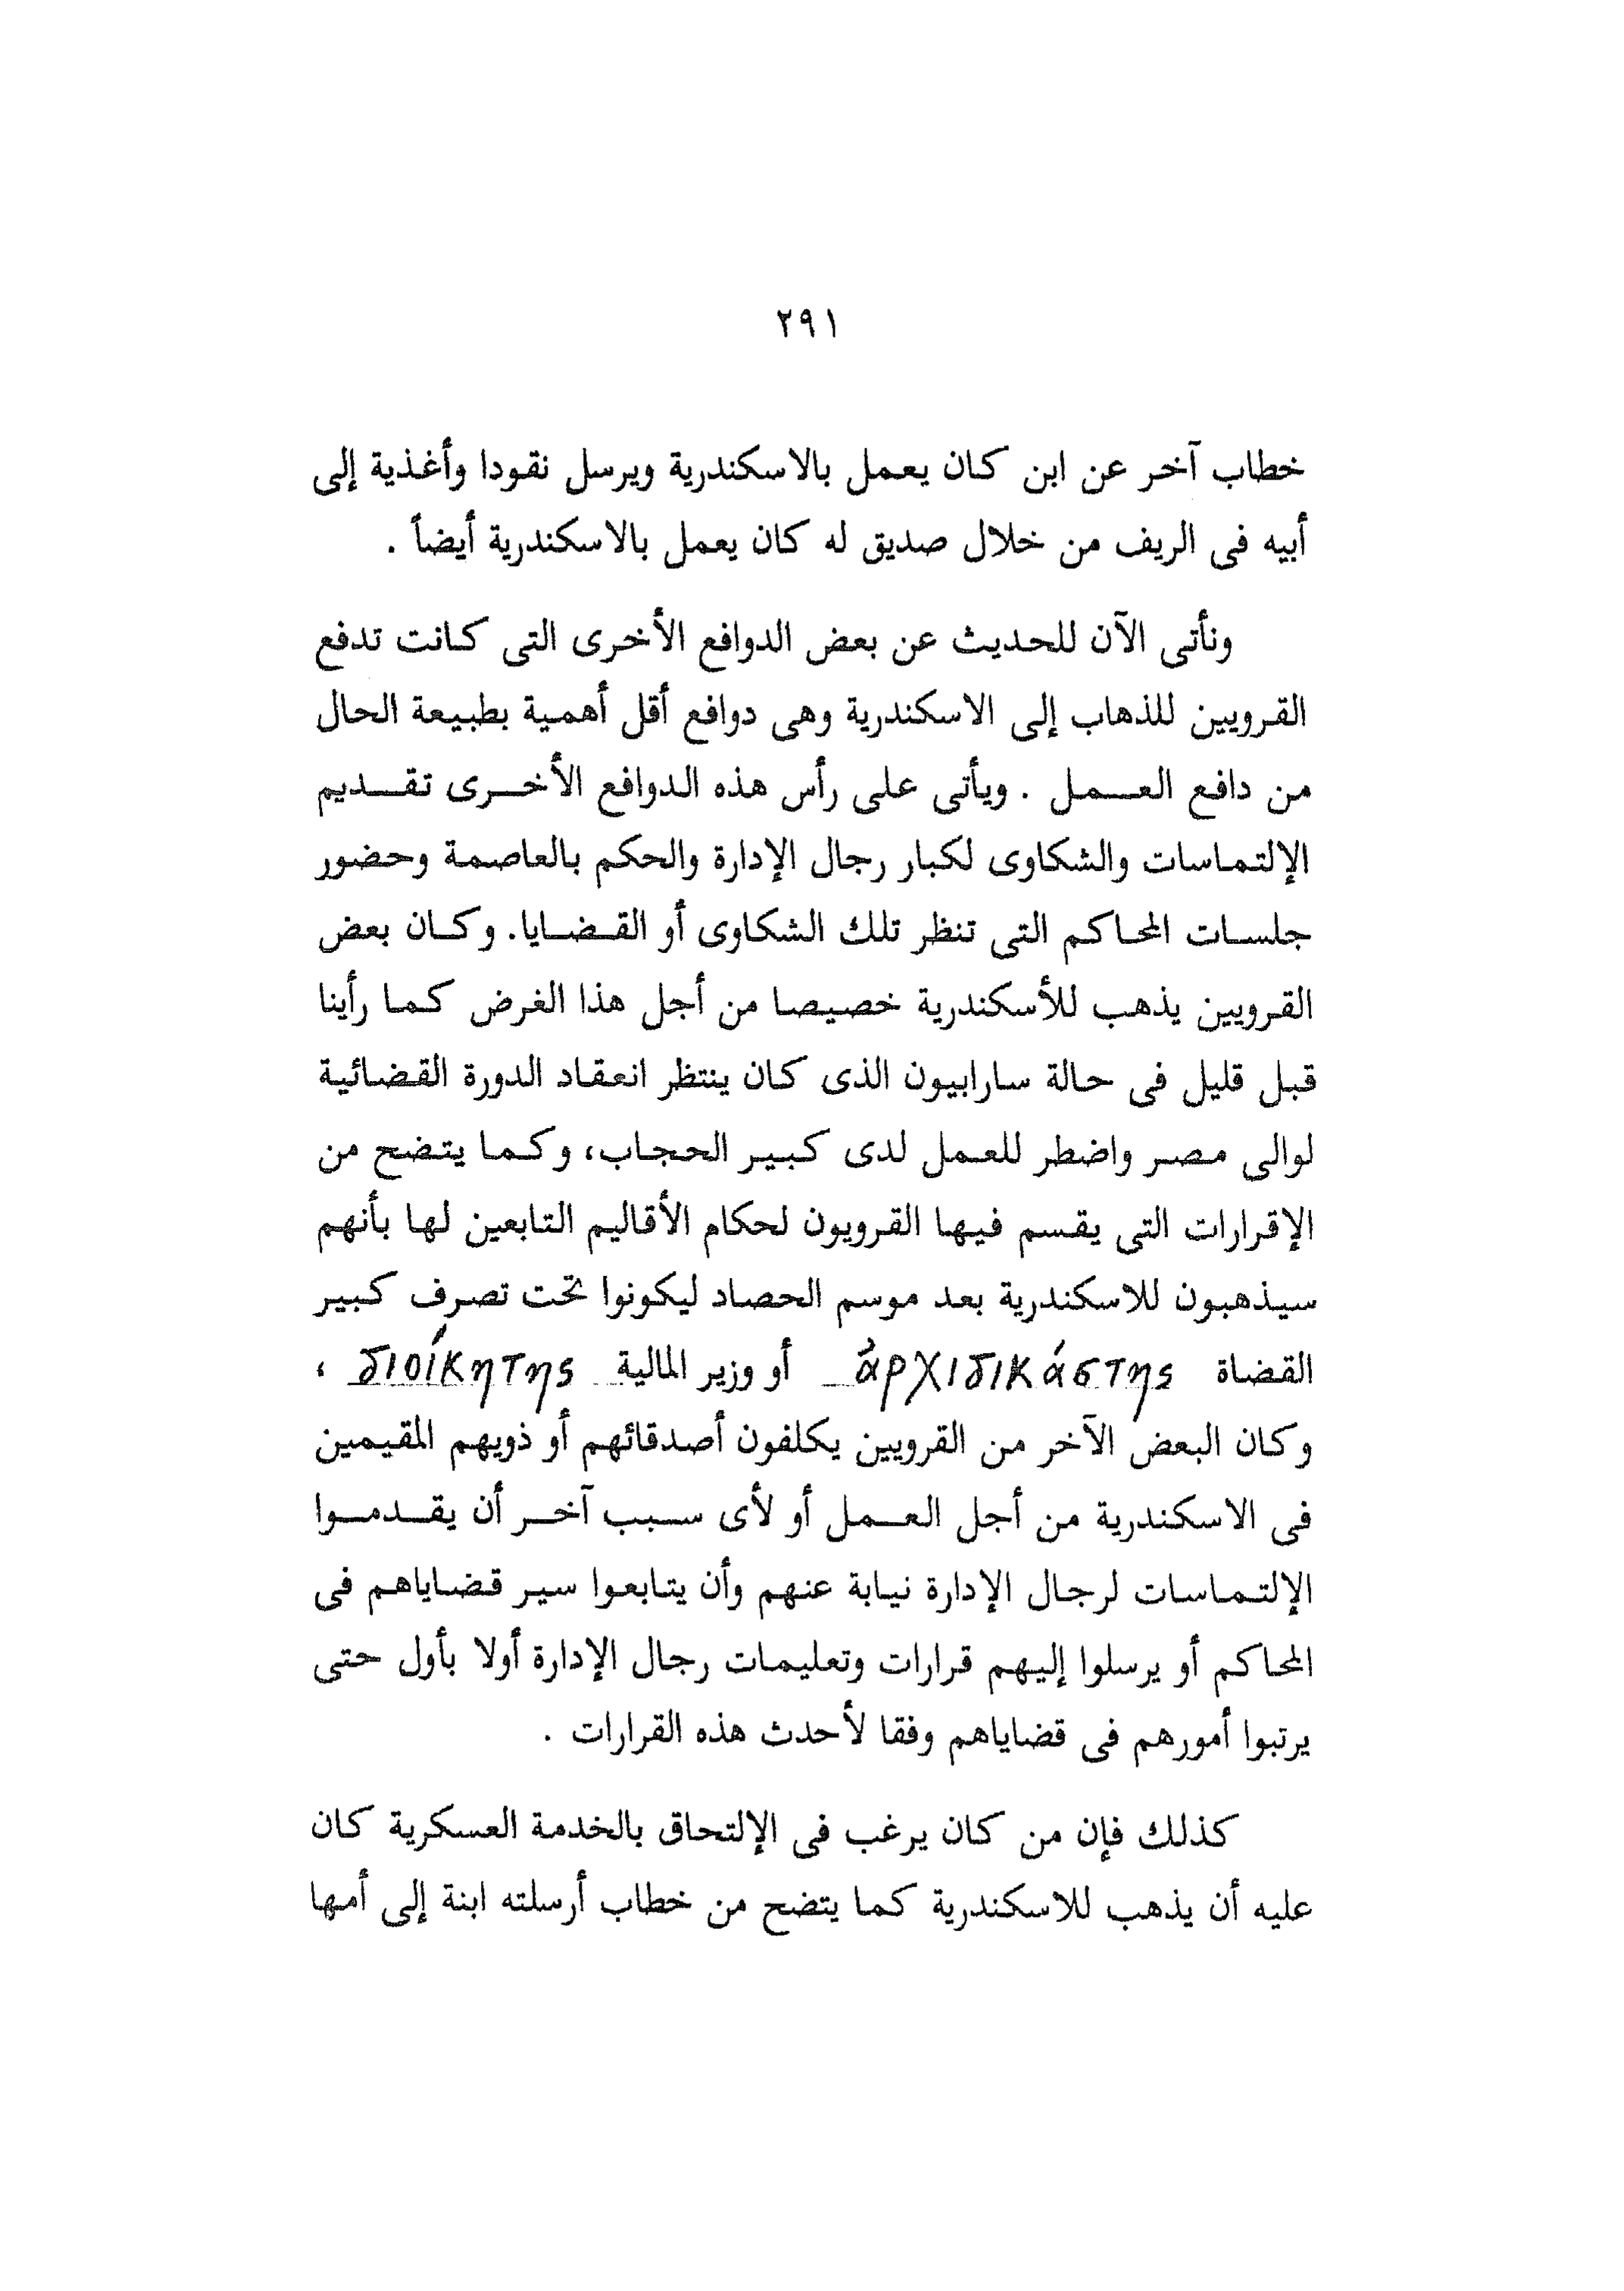 ٢٩١
خطاب آخر عن ابن كان يعمل بالاسكندرية ويرسل نقودا وأغذية إلى
أبيه فى الريف من خلال صديق له كان يعمل بالاسكندرية أيضاً .
ونأتى الآن للحديث عن بعض الدوافع الأخرى التى كانت تدفع
القرويين للذهاب إلى الاسكندرية وهى دوافع أقل أهمية بطبيعة الحال
من دافع العمل . ويأتى على رأس هذه الدوافع الأخرى تقديم
الإلتماسات والشكاوى لكبار رجال الإدارة والحكم بالعاصمة وحضور
جلسات المحاكم التى تنظر تلك الشكاوى أو القضايا. وكان بعض
القرويين يذهب للأسكندرية خصيصا من أجل هذا الغرض كما رأينا
قبل قليل فى حالة سارابيون الذى كان ينتظر انعقاد الدورة القضائية
لوالى مصر واضطر للعمل لدى كبير الحجاب، وكما يتضح من
الإقرارات التى يقسم فيها القرويون لحكام الأقاليم التابعين لها بأنهم
سيذهبون للاسكندرية بعد موسم الحصاد ليكونوا تحت تصرف كبير
القضاة ἀρχιδικάστης أو وزير المالية διοίκητης ،
وكان البعض الآخر من القرويين يكلفون أصدقائهم أو ذويهم المقيمين
فى الاسكندرية من أجل العمل أو لأى سبب آخر أن يقدموا
الإلتماسات لرجال الإدارة نيابة عنهم وأن يتابعوا سير قضاياهم فى
المحاكم أو يرسلوا إليهم قرارات وتعليمات رجال الإدارة أولا بأول حتى
يرتبوا أمورهم فى قضاياهم وفقا لأحدث هذه القرارات .
كذلك فإن من كان يرغب فى الإلتحاق بالخدمة العسكرية كان
عليه أن يذهب للاسكندرية كما يتضح من خطاب أرسلته ابنة إلى أمها